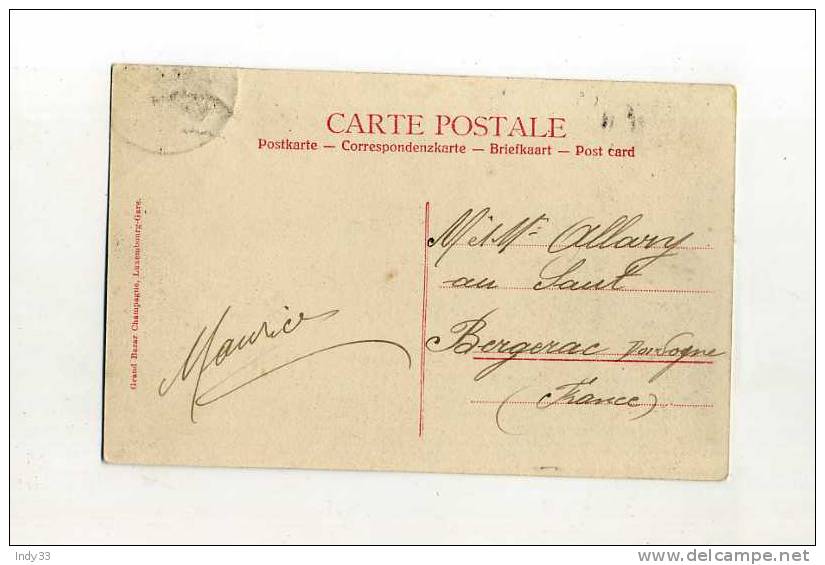 CARTE POSTALE
Postkarte — Correspondenzkarte — Briefkaart — Post card
Grand Bazar Champagne, Luxembourg-Gare.
Maurice
Mr et Mme Allary
au Saut
Bergerac Dordogne
(France)
Indy33
delcampe.net